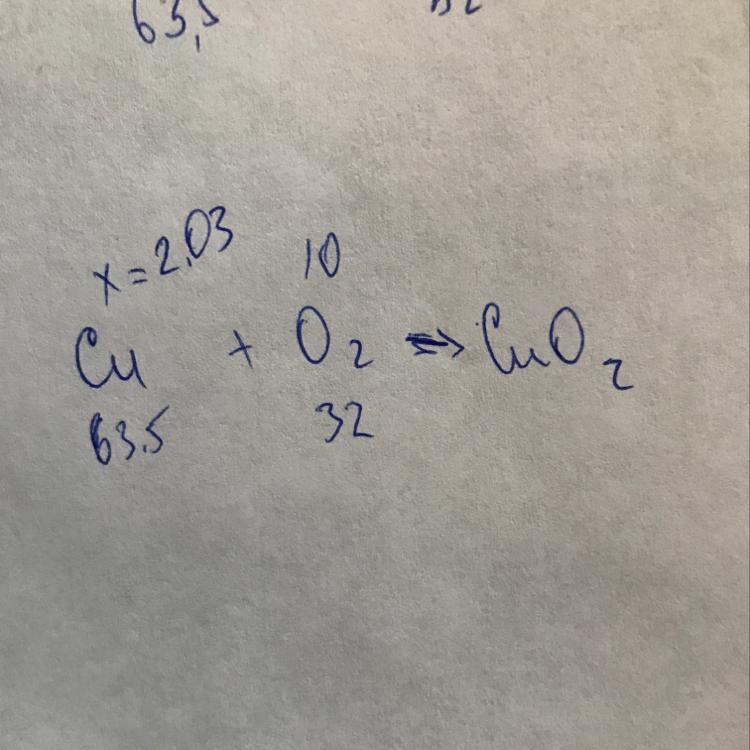 63,5
x = 2,03 10
Cu + O2 => CuO2
63.5 32